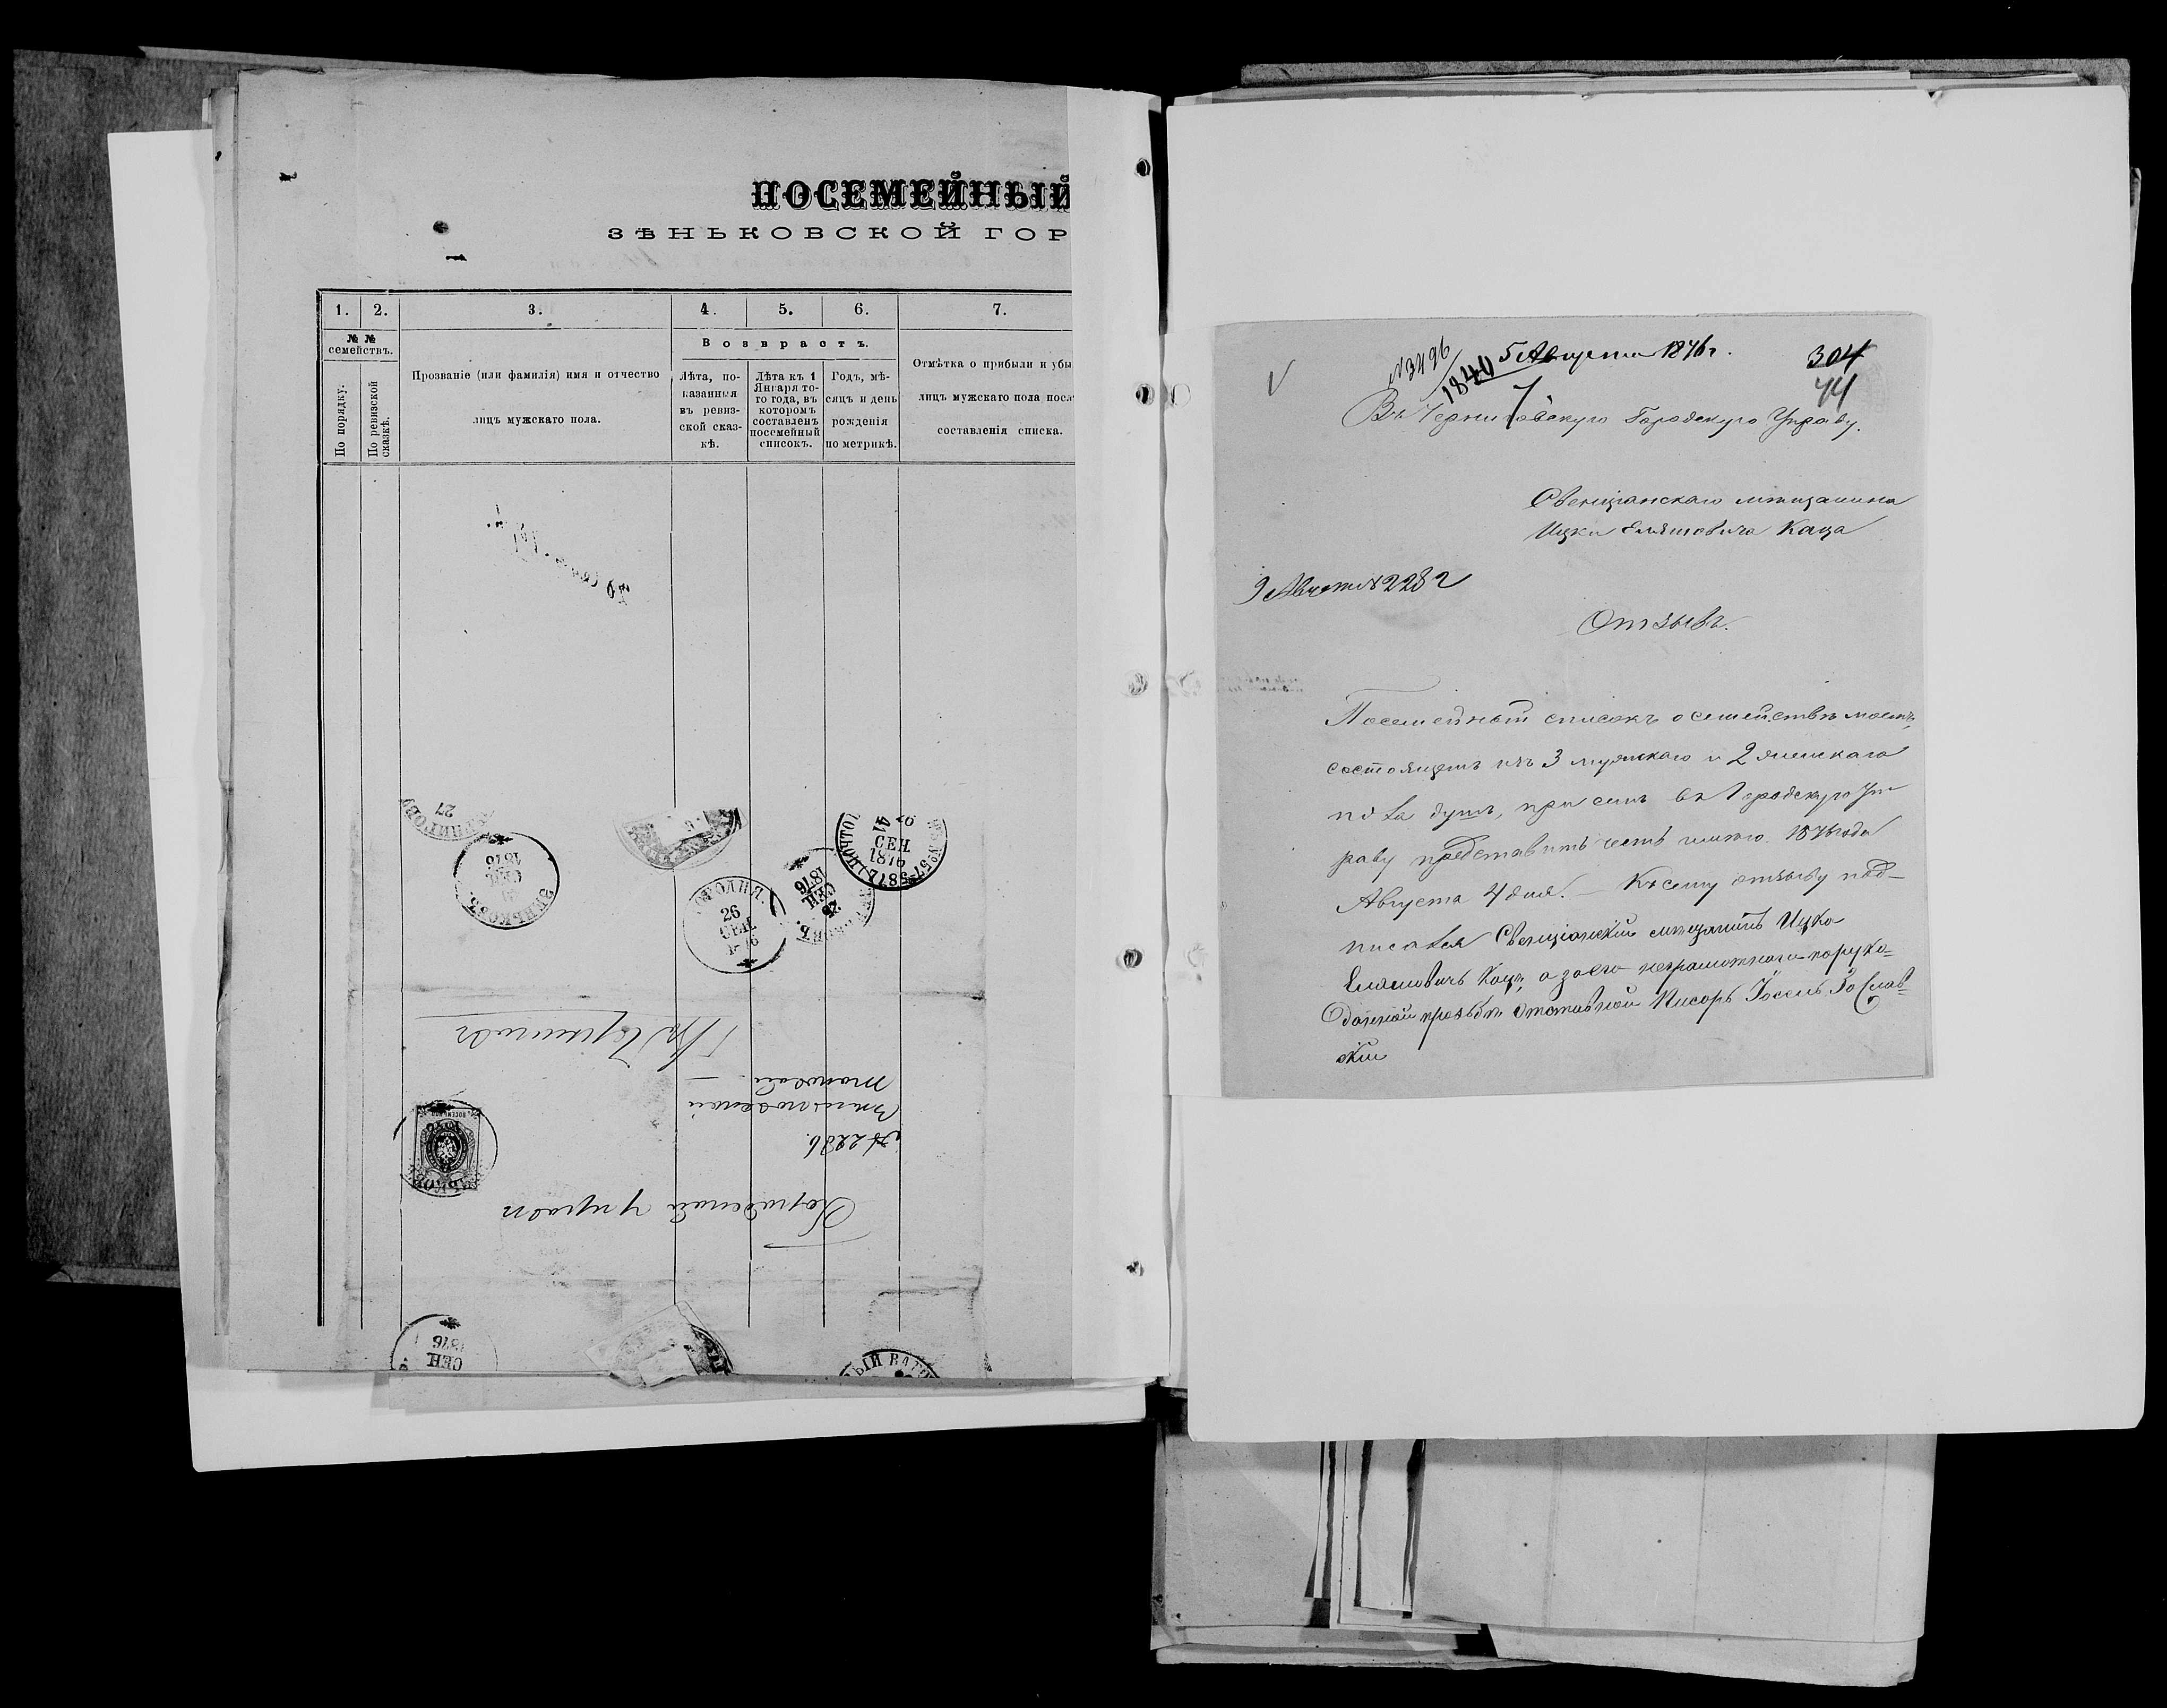 ПОСЕМЕЙНЫЙ
ЗѢНЬКОВСКОЙ ГОР
1. 2. 3. 4. 5. 6. 7.
№ № семействъ.
По порядку.
По ревизской сказкѣ.
Прозваніе (или фамилія) имя и отчество
лицъ мужскаго пола.
Возврастъ.
Лѣта, по-
казанныя
въ ревиз-
ской сказ-
кѣ.
Лѣта къ 1
Января то-
го года, въ
которомъ
составленъ
посемейный
списокъ.
Годъ, мѣ-
сяцъ и день
рожденія
по метрикѣ.
Отмѣтка о прибыли и убы
лицъ мужскаго пола посл
составленія списка.
27
ЗѢНЬКОВЪ
1876
26
СЕН
СЕН
1876
25
СЕН
1876
№ 2286.
Городской управѣ
СЕН
1876
№3496
5 Августа 1876 г.
304
1840
44
7
Въ Черниговскую Городскую Управу.
Свенцянскаго мѣщанина
Ицки Ельяшовича Каца
9 Августа №2282
Отзывъ.
Посемейный списокъ о семействѣ моемъ,
состоящемъ изъ 3 мужскаго и 2 женскаго
пола душъ, при семъ въ Городскую Уп
раву представить честь имѣю. 1876 года
Августа 4 дня. — Къ сему отзыву под-
писался Свенцянскій мѣщанинъ Ицко
Ельяшовичъ Кацъ, а за его неграмотнаго поруко-
данной прозьбѣ отставной Писарь Іосель Заслав-
скій